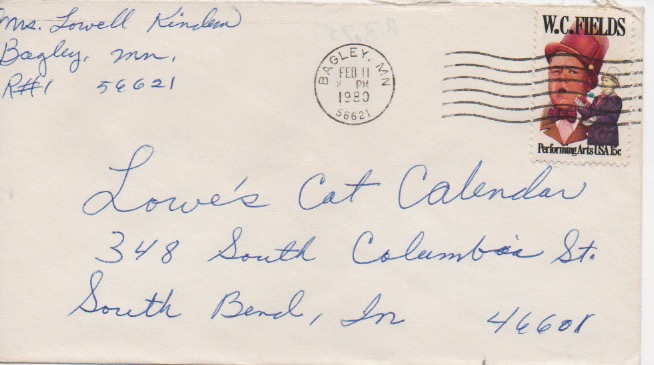 Mrs. Lowell Kinden
Bagley, Mn.
R#1 56621
BAGLEY, MN
FEB 11
PM
1980
56621
W.C. FIELDS
Performing Arts USA 15c
Lowe's Cat Calendar
348 South Columbia St.
South Bend, In 46601